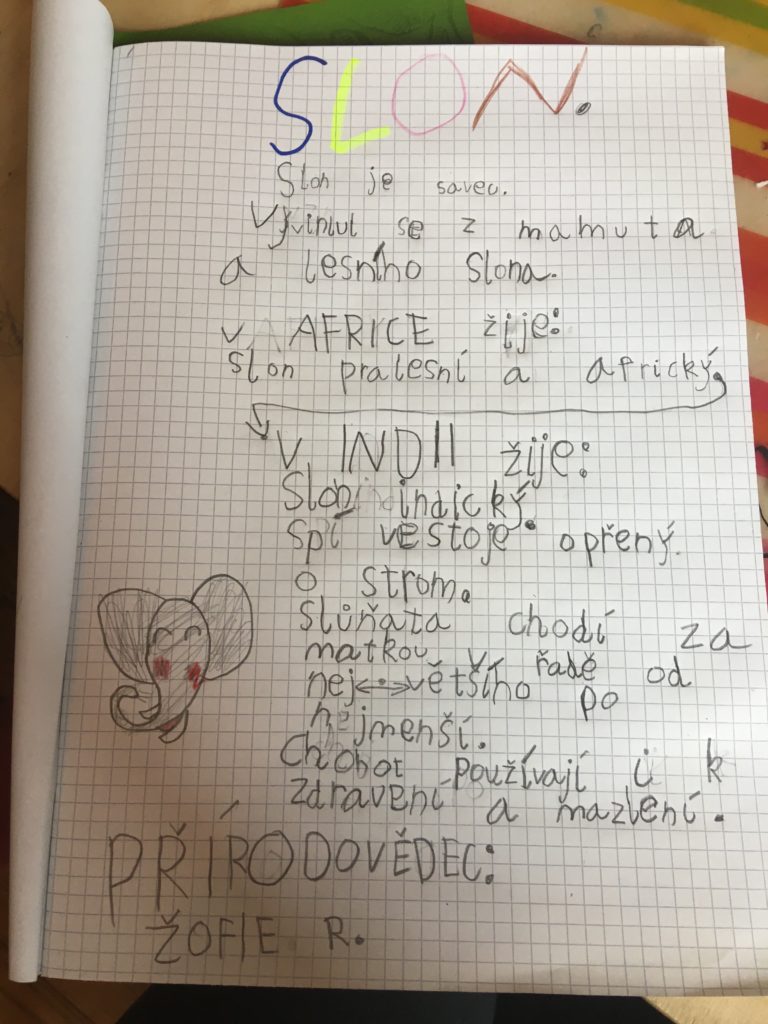 SLON.
Slon je savec.
Vyvinul se z mamuta
a lesního slona.
v AFRICE žije:
slon pralesní a africký,
V INDII žije:
Slon indický.
Spí vestoje opřený
o strom.
Slůňata chodí za
matkou v řadě od
nej většího po
nejmenší.
Chobot používají i k
zdravení a mazlení.
PŘÍRODOVĚDEC:
ŽOFIE R.